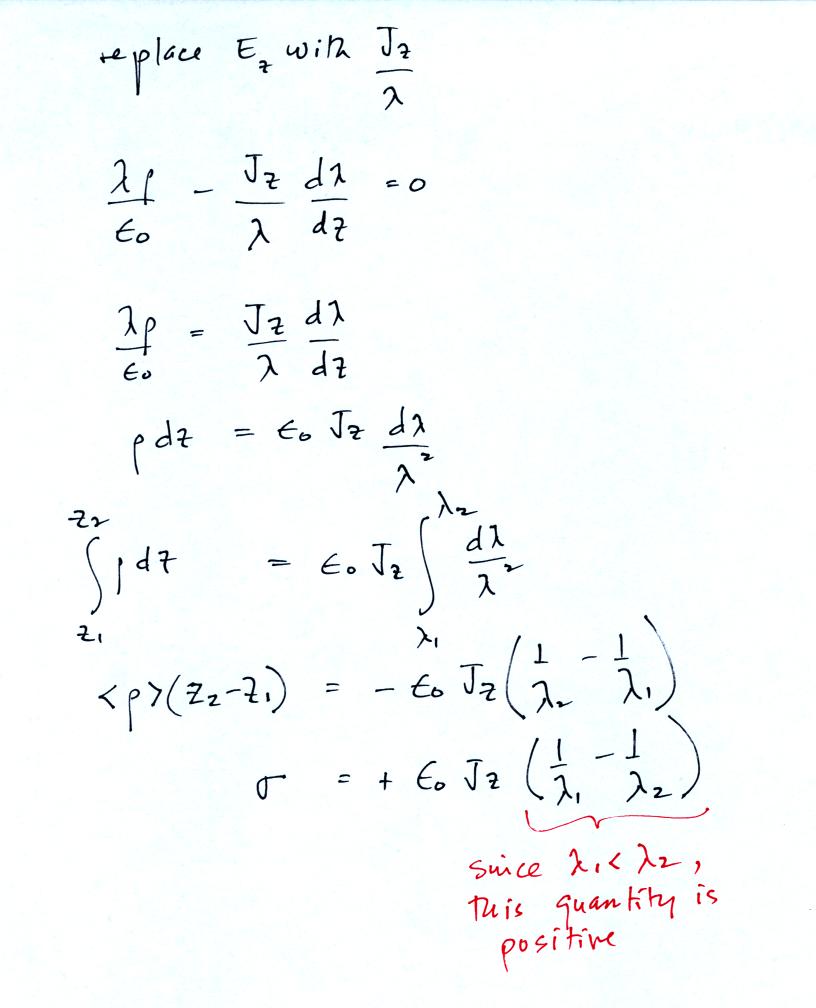 replace E_z with J_z/λ
λρ/ϵ₀ - J_z/λ dλ/dz = 0
λρ/ϵ₀ = J_z/λ dλ/dz
ρ dz = ϵ₀ J_z dλ/λ²
∫_{z₁}^{z₂} ρ dz = ϵ₀ J_z ∫_{λ₁}^{λ₂} dλ/λ²
<ρ>(z₂-z₁) = - ϵ₀ J_z (1/λ₂ - 1/λ₁)
σ = + ϵ₀ J_z (1/λ₁ - 1/λ₂)
since λ₁< λ₂,
this quantity is
positive